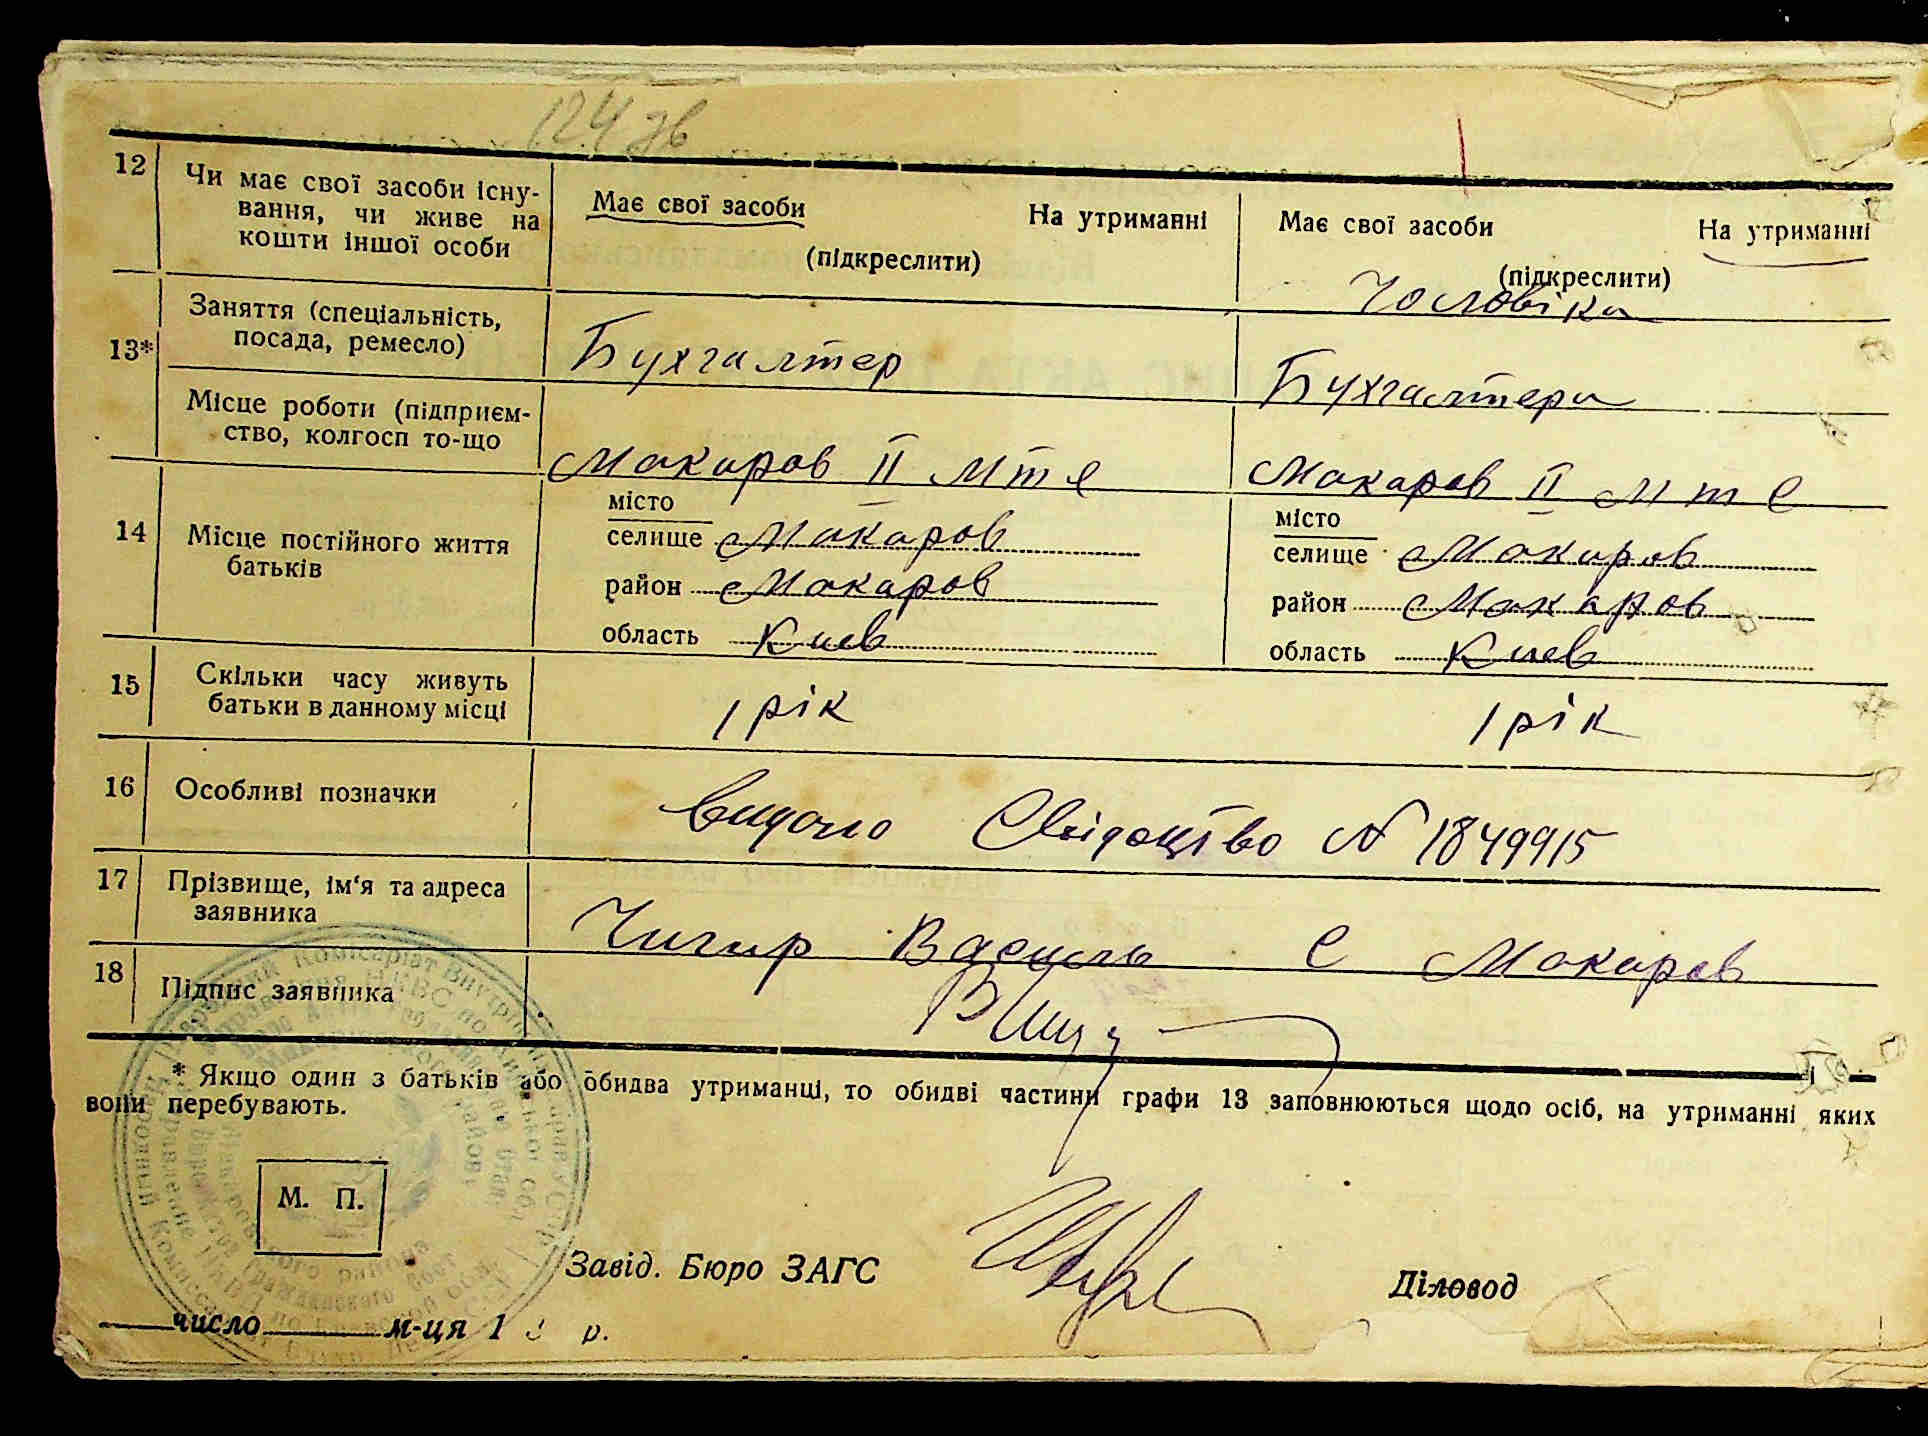 124 зв
12 Чи має свої засоби існу-
вання, чи живе на
кошти іншої особи
Має свої засоби На утриманні
(підкреслити)
Має свої засоби На утриманні
(підкреслити)
Чоловіка
13* Заняття (спеціальність,
посада, ремесло)
Бухгалтер
Бухгалтера
Місце роботи (підприєм-
ство, колгосп то-що
Макаров II МТС
Макаров II МТС
14 Місце постійного життя
батьків
місто
селище Макаров
район Макаров
область Киев
місто
селище Макаров
район Макаров
область Киев
15 Скільки часу живуть
батьки в данному місці
1 рік
1 рік
16 Особливі позначки
Видано Свідоцтво N 1849915
17 Прізвище, ім'я та адреса
заявника
Чигир Василь С Макаров
18 Підпис заявника
* Якщо один з батьків або обидва утриманці, то обидві частини графи 13 заповнюються щодо осіб, на утриманні яких
вони перебувають.
М. П.
Завід. Бюро ЗАГС
Діловод
число м-ця 1 р.